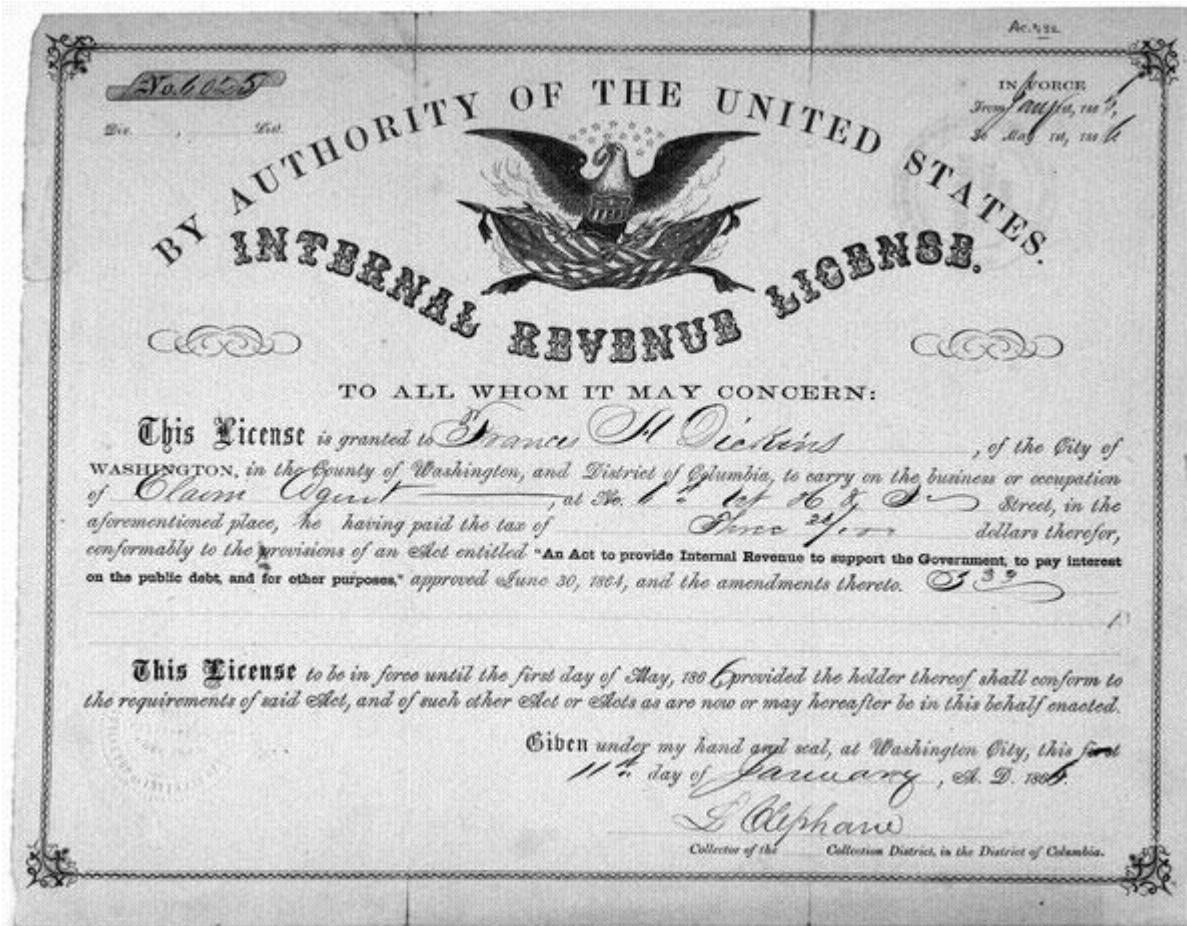 No. 6025
Div. , Dist.
IN FORCE
From Jan 1st, 186
To May 1st, 1866
BY AUTHORITY OF THE UNITED STATES.
INTERNAL REVENUE LICENSE.
TO ALL WHOM IT MAY CONCERN:
This License is granted to Frances H Dickins , of the City of
WASHINGTON, in the County of Washington, and District of Columbia, to carry on the business or occupation
of Claim Agent , at No. H & Street, in the
aforementioned place, he having paid the tax of Three dollars therefor,
conformably to the provisions of an Act entitled "An Act to provide Internal Revenue to support the Government, to pay interest
on the public debt, and for other purposes," approved June 30, 1864, and the amendments thereto.
This License to be in force until the first day of May, 1866 provided the holder thereof shall conform to
the requirements of said Act, and of such other Act or Acts as are now or may hereafter be in this behalf enacted.
Given under my hand and seal, at Washington City, this first
11th day of January , A. D. 186
L Clephane
Collector of the Collection District, in the District of Columbia.